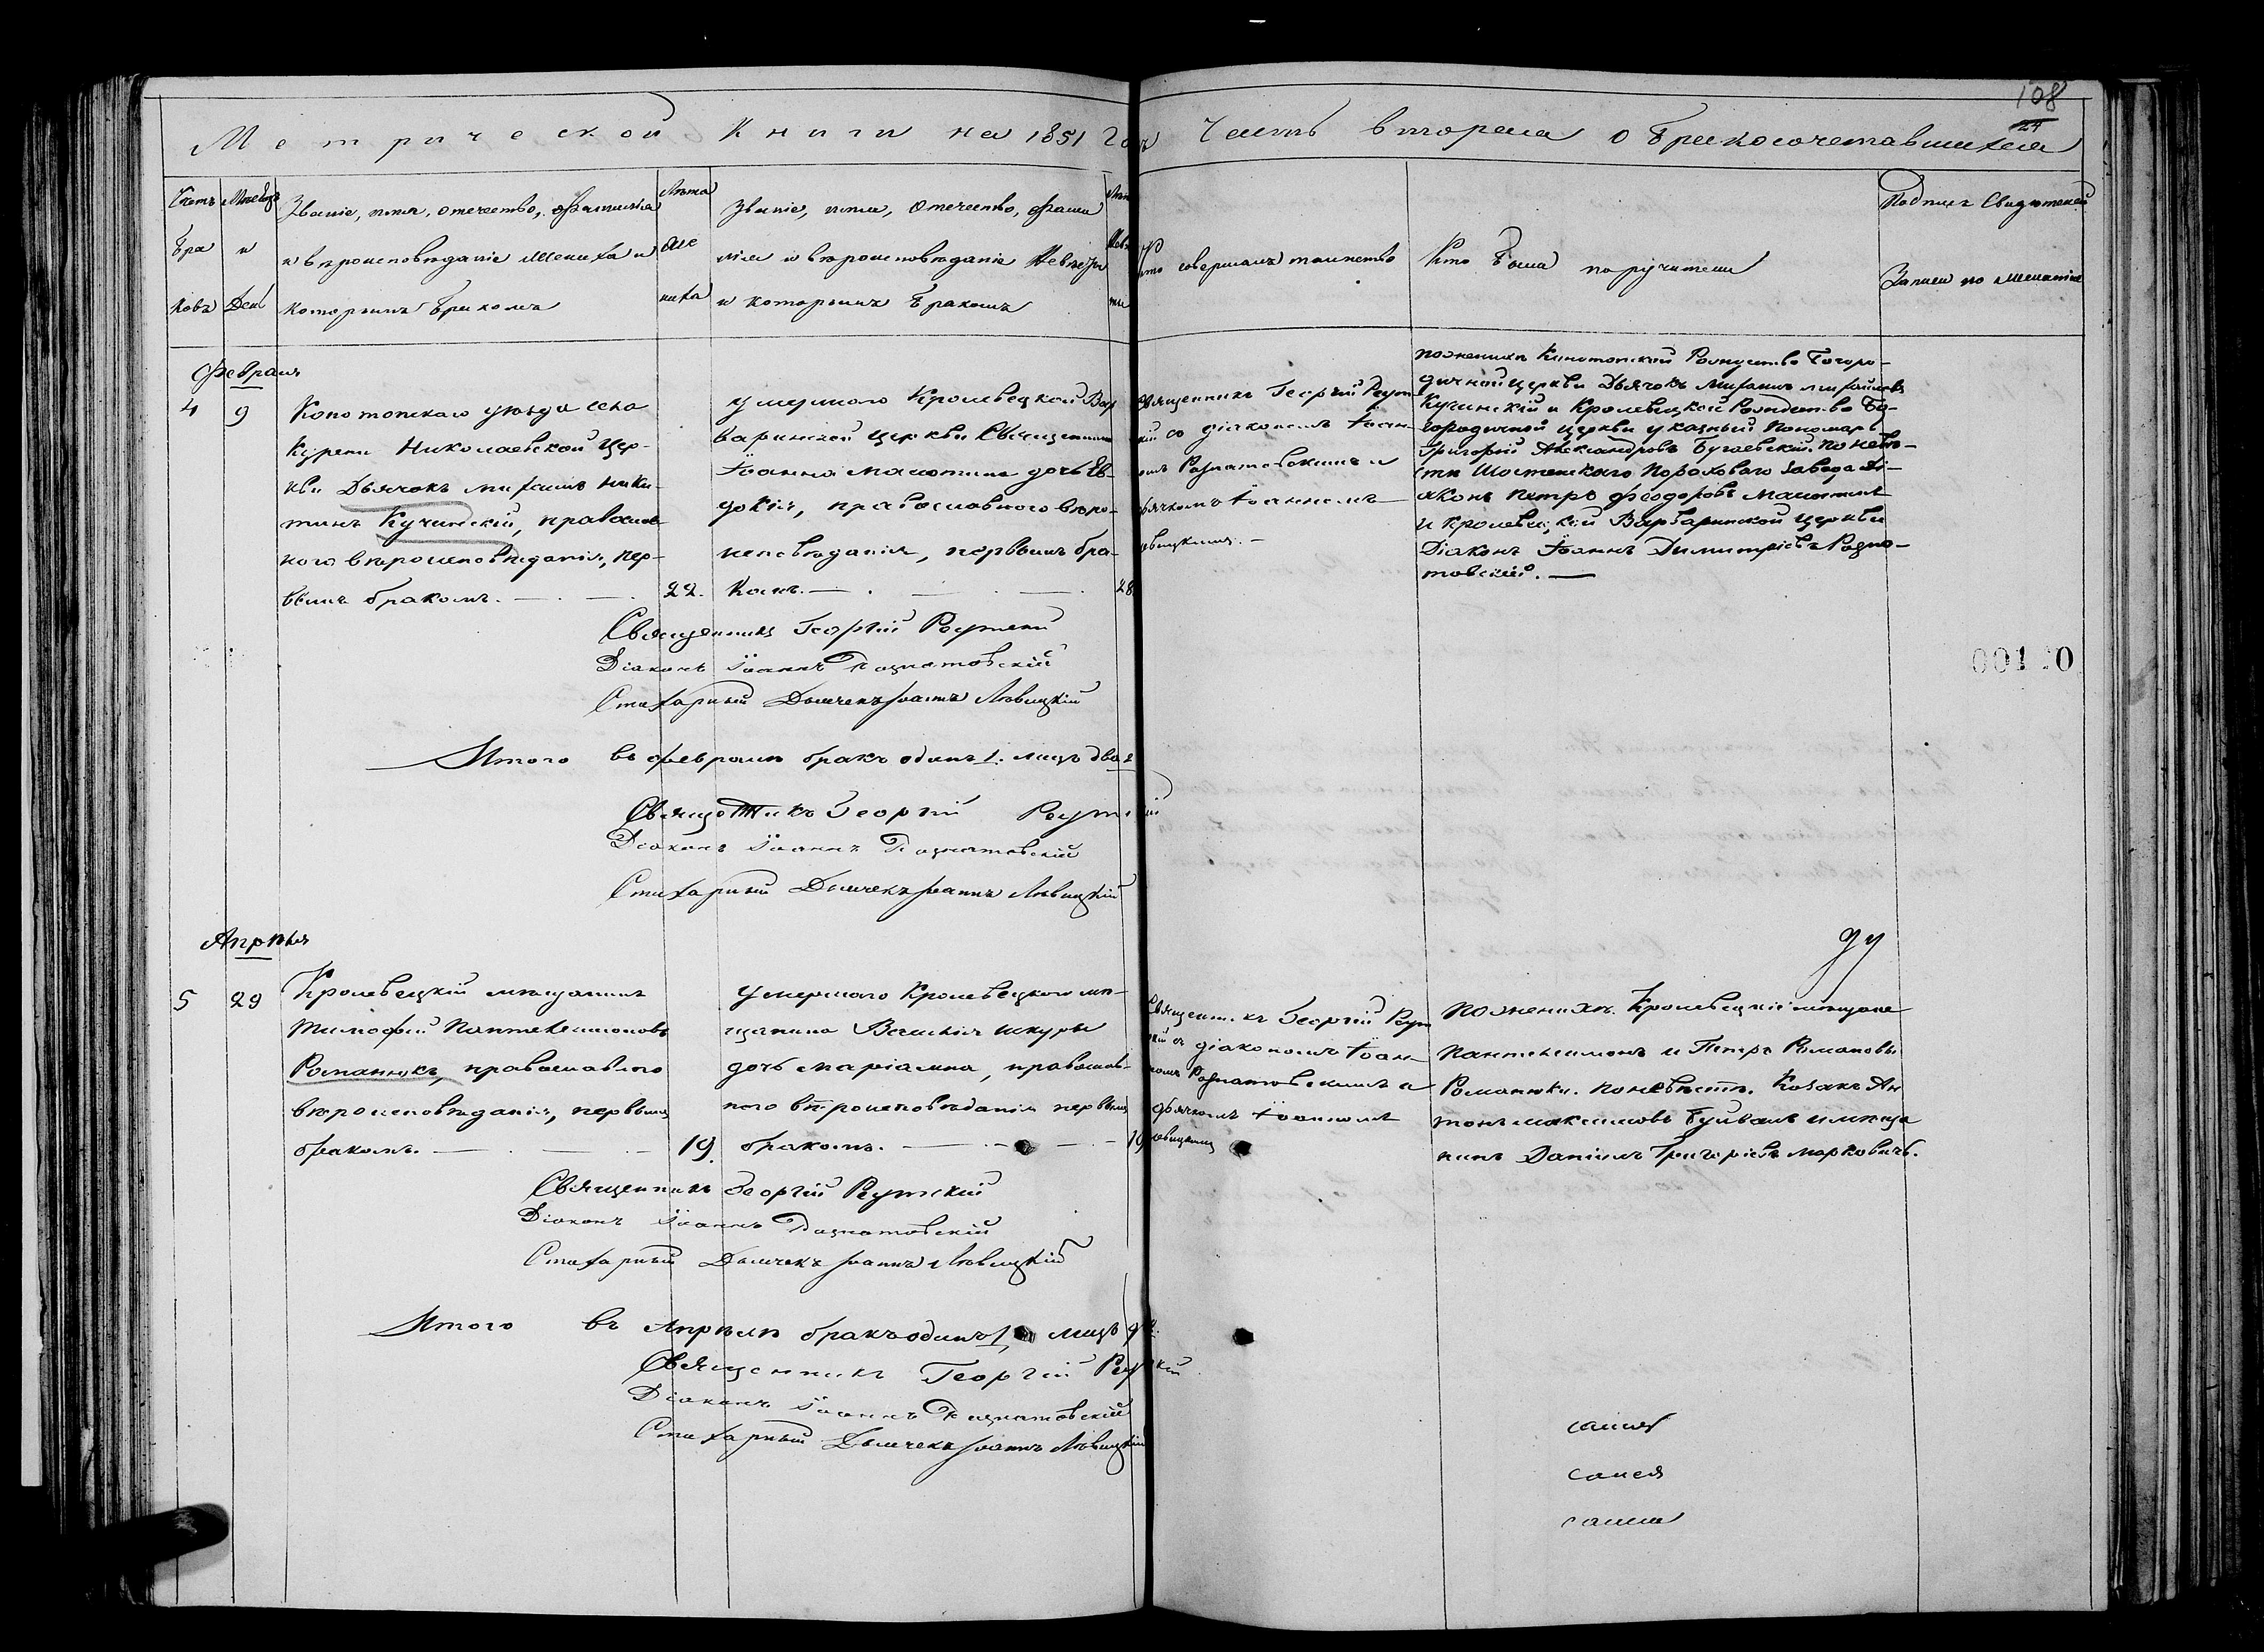 108
24
Метрической Книги на 1851 Годъ Часть вторая о бракосочетавшихся
Счетъ браковъ
Месяцъ и День
Званіе, имя, отечество, фамилія
и вѣроисповѣданіе Жениха и
которымъ бракомъ
Лѣта жениха
Званіе, имя, отечество, фами
лія и вѣроисповѣданіе Невѣсты
и которымъ бракомъ
Лѣта Невѣсты
Кто совершалъ таинство
Кто были поручители
Подпись Свидѣтелей
Записи по желанію
Февраль
4 9
Конотопскаго уѣзда села
Курени Николаевской Цер-
кви Дьячокъ Михаилъ Ники-
тинъ Кучинскій, православ
ного вѣроисповѣданія, пер-
вымъ бракомъ. 22.
умершого Кролевецкой Вар
варинской Церкви Священника
Іоанна Малютина дочь Ев-
докія, православного вѣро-
исповѣданія, первымъ бра-
комъ. 28
Священникъ Георгій Реут
кій со діакономъ Іоан-
номъ Рознатовскимъ и
дьячкомъ Іоанномъ
Левицкимъ.
по женихѣ Конотопской Рождество Богоро-
дичной Церкви Дьячокъ Михаилъ Михайловъ
Кучинскій и Кролевецкой Рождество Бо-
городичной Церкви указный Пономарь
Григорій Александровъ Бугаевскій. по невѣ-
стѣ Шостенскаго Порохового Завода Ді-
аконъ Петръ Феодоровъ Малютинъ
и Кролевецкій Варваринской Церкви
Діаконъ Іоаннъ Димитріевъ Розна-
товскій.
Священникъ Георгій Реутскій
Діаконъ Іоаннъ Рознатовскій
Стихарный Дьячекъ Іоаннъ Левицкій
001 0
Итого въ февралѣ бракъ одинъ 1. лицъ два 2
Священникъ Георгій Реутскій
Діаконъ Іоаннъ Рознатовскій
Стихарный Дьячекъ Іоаннъ Левицкій
Апрѣля
5 29
Кролевецкій мѣщанинъ
Тимофей Пантелеимоновъ
Романюкъ, православного
вѣроисповѣданія, первымъ
бракомъ. 19.
умершого Кролевецкого мѣ-
щанина Василія Шкуры
дочь Маріамна, православ-
ного вѣроисповѣданія первымъ
бракомъ. 19
Священникъ Георгій Реут
кій съ діакономъ Іоан-
номъ Рознатовскимъ и
дьячкомъ Іоанномъ
Левицкимъ
по женихѣ. Кролевецкіе мѣщане
Пантелеимонъ и Петръ Романовы
Романюки. по невѣстѣ. Козакъ Ан
тонъ Максимовъ Буйвалъ и мѣща
нинъ Даніилъ Григоріевъ Марковичъ.
Священникъ Георгій Реутскій
Діаконъ Іоаннъ Рознатовскій
Стихарный Дьячекъ Іоаннъ Левицкій
Итого въ Апрѣлѣ бракъ одинъ 1, лицъ 2.
Священникъ Георгій Реутскій
Діаконъ Іоаннъ Рознатовскій
Стихарный Дьячекъ Іоаннъ Левицкій